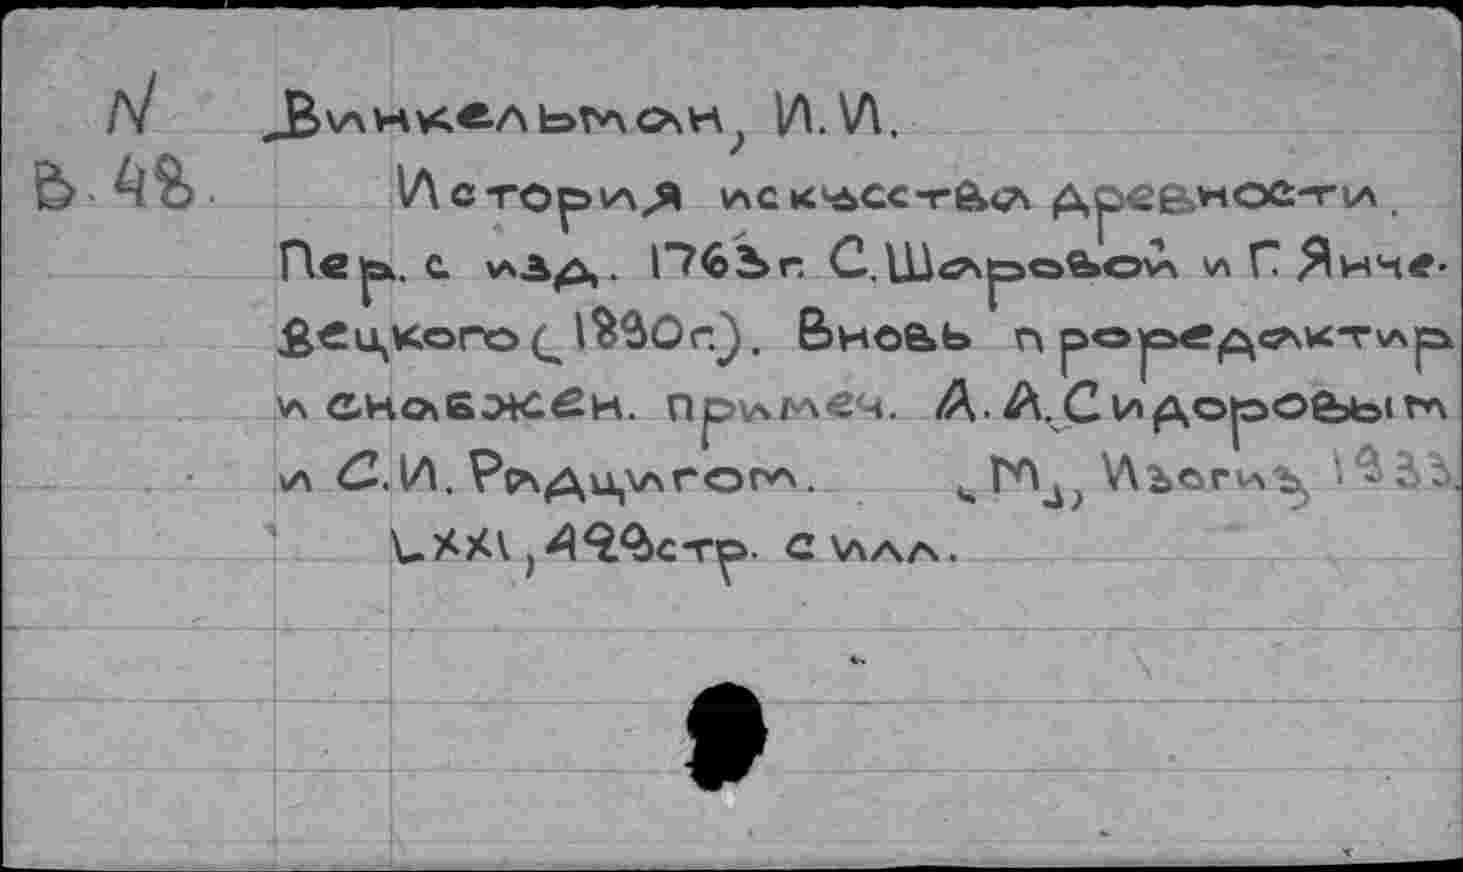 N Винкельман, И. И.
В 48. История искусства древности.
Пер. с изд. 1763г. С. Шаровой и Г. Янче-
вецкого (1890г.). Вновь проредактир
и снабжен. примеч. А. А. Сидоровым
и С. И. Радцигом. М., Изогиз, 1933.
LXXI, 429стр. с илл.